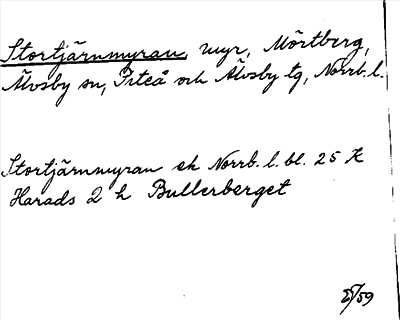 Stortjärnmyran, myr, Mörtberg,
Älvsby sn, Piteå och Älvsby tg, Norrb. l.
Stortjärnmyran ek Norrb. l. bl. 25 K
Harads 2 h Bullerberget
/59